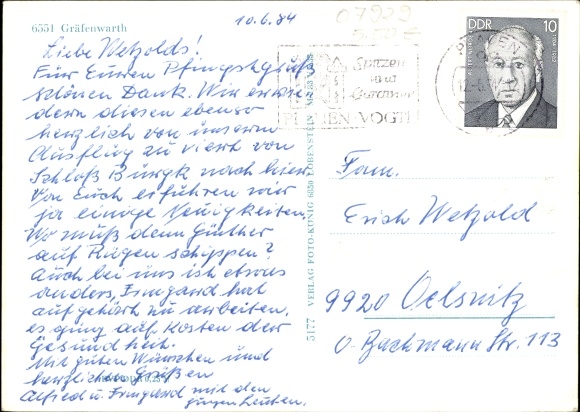 6551 Gräfenwarth
10.6.84
07929
5,50 €
Liebe Wetzolds!
Für Euren Pfingstgruß
schönen Dank. Wir erwie-
dern diesen ebenso
herzlich von unserm
Ausflug zu viert von
Schloß Burgk nach hier.
Von Euch erführen wir
ja einige Neuigkeiten,
Wo muß denn Günther
auf Rügen schippen?
Auch bei uns ist etwas
anders, Irmgard hat
aufgehört zu arbeiten,
es ging auf Kosten der
Gesundheit.
Mit guten Wünschen und
herzlichen Grüßen
Alfred u. Irmgard mit den
jungen Leuten.
5177 VERLAG FOTO-KÖNIG 6850 LOBENSTEIN
Spitzen
und
Gardinen
PLAUEN VOGTL
PLAUEN
DDR 10
Fam.
Erich Wetzold
9920 Oelsnitz
O.-Bachmann Str. 113